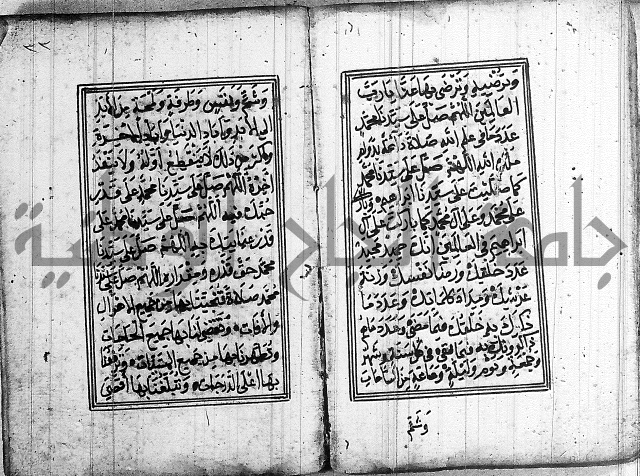 وترضيه وترضى بها عنا يا رب
العالمين اللهم صل على سيدنا محمد
عدد ما في علم الله صلاة دائمة بدوام
ملك الله اللهم صل على سيدنا محمد
كما صليت على سيدنا ابراهيم وبارك
على محمد وعلى آل محمد كما باركت على آل
ابراهيم في العالمين انك حميد مجيد
عدد خلقك ورضا نفسك وزنة
عرشك ومداد كلماتك وعدد ما
ذكرك به خلقك فيما مضى وعدد ما هم
ذاكرونك به فيما بقي في كل سنة وشهر
وجمعة ويوم وليلة وساعة من الساعات
وشم
وشم ونفس وطرفة ولمحة من الأبد
الى الأبد وآباد الدنيا وآباد الآخرة
وأكثر من ذلك لا ينقطع أوله ولا ينفد
آخره اللهم صل على سيدنا محمد على قدر
حبك فيه اللهم صل على سيدنا محمد على
قدر عنايتك به اللهم صل على سيدنا
محمد حق قدره ومقداره اللهم صل على سيدنا
محمد صلاة تنجينا بها من جميع الاهوال
والآفات وتقضي لنا بها جميع الحاجات
وتطهرنا بها من جميع السيئات وترفعنا
بها أعلى الدرجات وتبلغنا بها أقصى
جامع الحاج